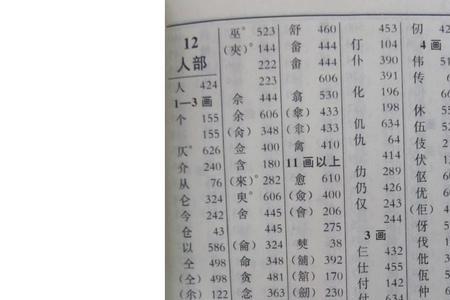 12
人部
人 424
1—3 画
个 155
155
仄° 626
介 240
从 76
仑 324
今 242
仓 43
以 586
仝 498
(仝) 498
(尒) 122
巫° 523
(夾)° 144
222
223
佘 444
余 606
(肏) 348
金 400
含 180
(來)° 282
臾° 606
舍 445
445
(侖) 324
命 348
貪 481
念 363
舒 460
畲 444
畬 444
606
翕 530
433
433
禽 410
11 画以上
愈 610
(僉) 400
(會) 206
275
僰 38
(舖) 392
(舘) 170
(劒) 230
453
仃 104
仆 390
391
化 196
198
仉 634
仇 64
414
仂 289
仍 426
仅 243
244
3 画
仨 432
仕 455
付 142
仗 634
仞 42
4 画
伟 51
传 6
休 55
伍 52
伎 2
伏 13
伛 60
优 60
(佢) 4
伢 5
伐 1
仳
佤
仲